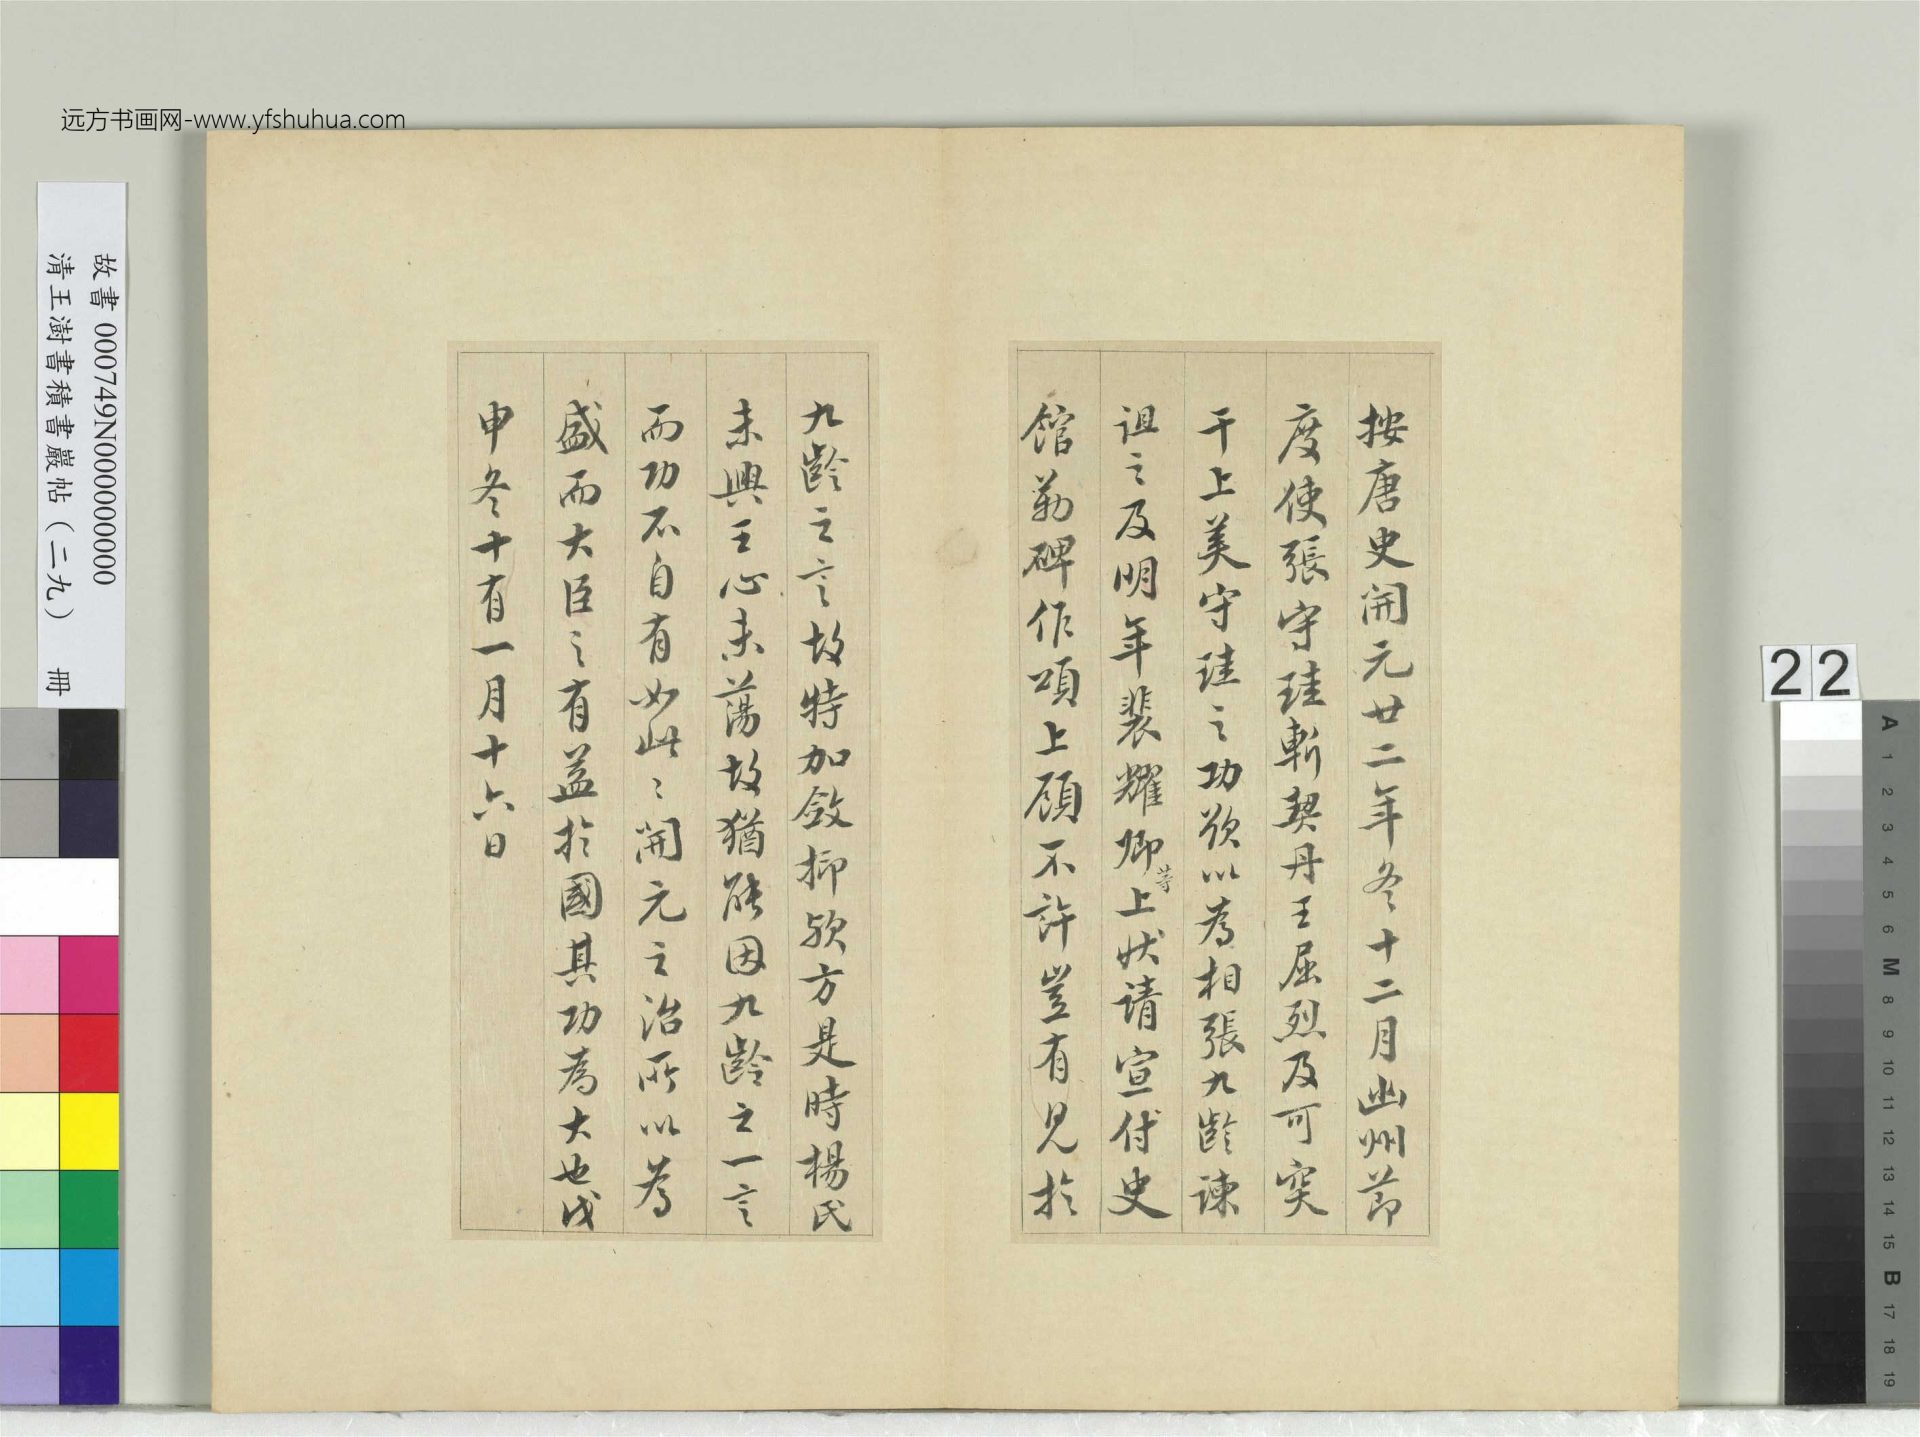 远方书画网-www.yfshuhua.com
故書 000749N000000000
清王澍書積書巖帖（二九） 冊
22
按唐史開元廿二年冬十二月幽州節
度使張守珪斬契丹王屈烈及可突
干上美守珪之功欲以為相張九齡諫
詛之及明年裴耀卿等上狀請宣付史
館勒碑作頌上顧不許豈有見於
九齡之言故特加斂抑歟方是時楊氏
未興王心未蕩故猶能因九齡之一言
而功不自有如此〻開元之治所以為
盛而大臣之有益於國其功為大也戊
申冬十有一月十六日
A 1 2 3 4 5 6 M 8 9 10 11 12 13 14 15 B 17 18 19